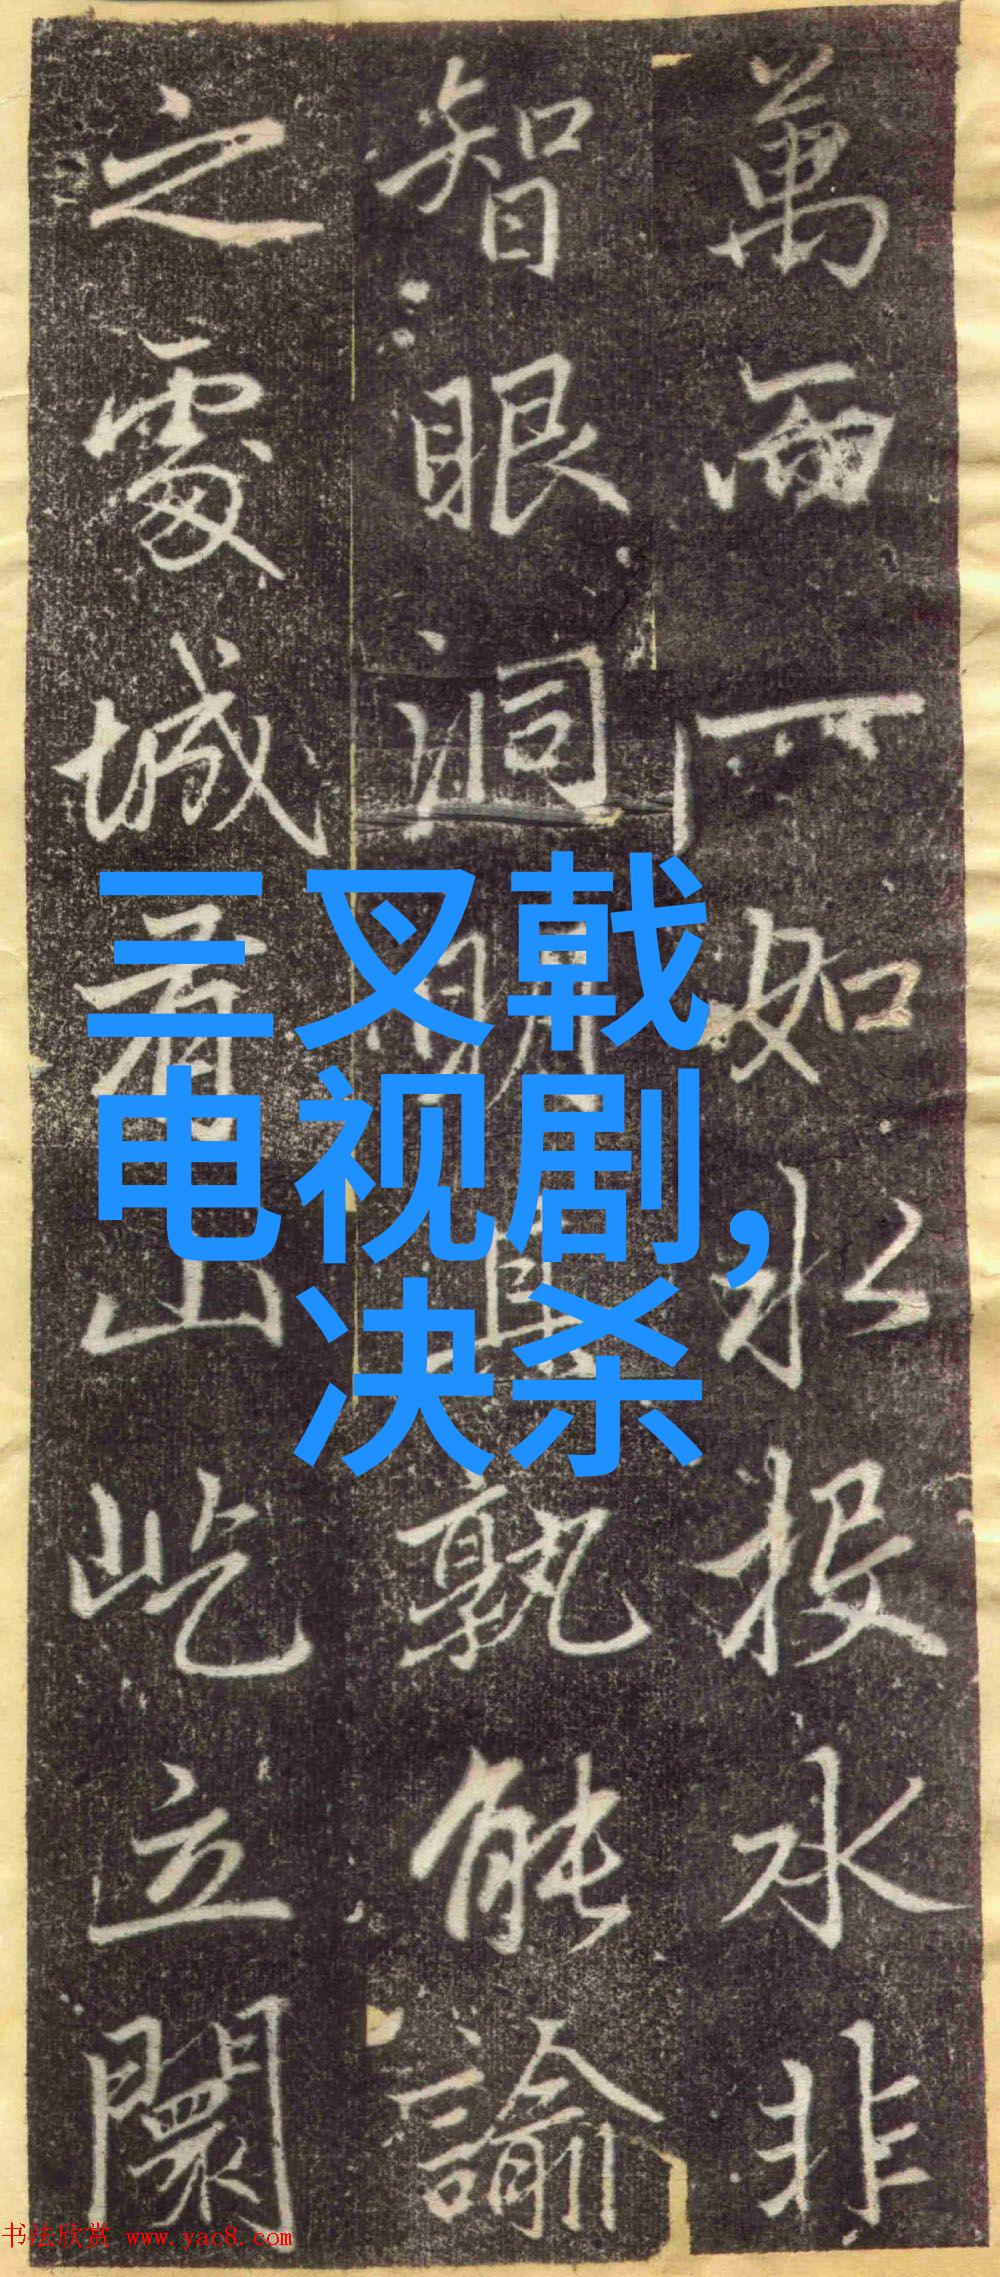 萬一如水投水非
智眼洞孰能諭
之處城山屹立闤
三叉戟
电视剧，
决杀
书法欣赏 www.yac8.com